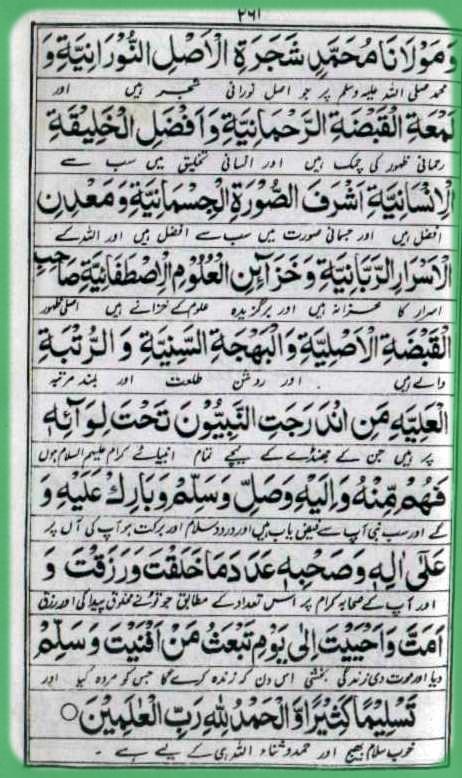 ۲۶۱
وَمَوْلَانَا مُحَمَّدٍ شَجَرَةِ الْاَصْلِ النُّوْرَانِيَّةِ وَ
محمد صلی اللہ علیہ وسلم پر جو اصل نورانی شجر ہیں اور
لَمْعَةِ الْقَبْضَةِ الرَّحْمَانِيَّةِ وَاَفْضَلِ الْخَلِيْقَةِ
رحمانی ظہور کی چمک ہیں اور انسانی تخلیق میں سب سے
الْاِنْسَانِيَّةِ اَشْرَفِ الصُّوْرَةِ الْجِسْمَانِيَّةِ وَمَعْدِنِ
افضل ہیں اور جسمانی صورت میں سب سے افضل ہیں اور اللہ کے
الْاَسْرَارِ الرَّبَّانِيَّةِ وَخَزَآئِنِ الْعُلُوْمِ الْاِصْطَفَائِيَّةِ صَاحِبِ
اسرار کا خزانہ ہیں اور برگزیدہ علوم کے خزانے ہیں اصلی ظہور
الْقَبْضَةِ الْاَصْلِيَّةِ وَالْبَهْجَةِ السَّنِيَّةِ وَالرُّتْبَةِ
والے ہیں اور روشن طلعت اور بلند مرتبہ
الْعَلِيَّةِ مَنِ انْدَرَجَتِ النَّبِيُّوْنَ تَحْتَ لِوَآئِهٖ
پر ہیں جن کے جھنڈے کے نیچے تمام انبیائے کرام علیہم السلام ہوں
فَهُمْ مِّنْهُ وَاِلَيْهِ وَصَلِّ وَسَلِّمْ وَبَارِكْ عَلَيْهِ وَ
گے اور سب نبی آپ سے فیض یاب ہیں اور درود سلام اور برکت ہر آپ کی آل پر
عَلٰى اٰلِهٖ وَصَحْبِهٖ عَدَدَ مَا خَلَقْتَ وَرَزَقْتَ وَ
اور آپ کے صحابہ کرام پر اس تعداد کے مطابق جو تونے مخلوق پیدا کی اور رزق
اَمَتَّ وَاَحْيَيْتَ اِلٰى يَوْمِ تَبْعَثُ مَنْ اَفْنَيْتَ وَسَلِّمْ
دیا اور موت دی زندگی بخشی اس دن کہ زندہ کرے گا جس کو مردہ کیا اور
تَسْلِيْمًا كَثِيْرًا وَّالْحَمْدُ لِلّٰهِ رَبِّ الْعٰلَمِيْنَ ○
خوب سلام بھیج اور حمد و ثناء اللہ ہی کے لیے ہے ۔